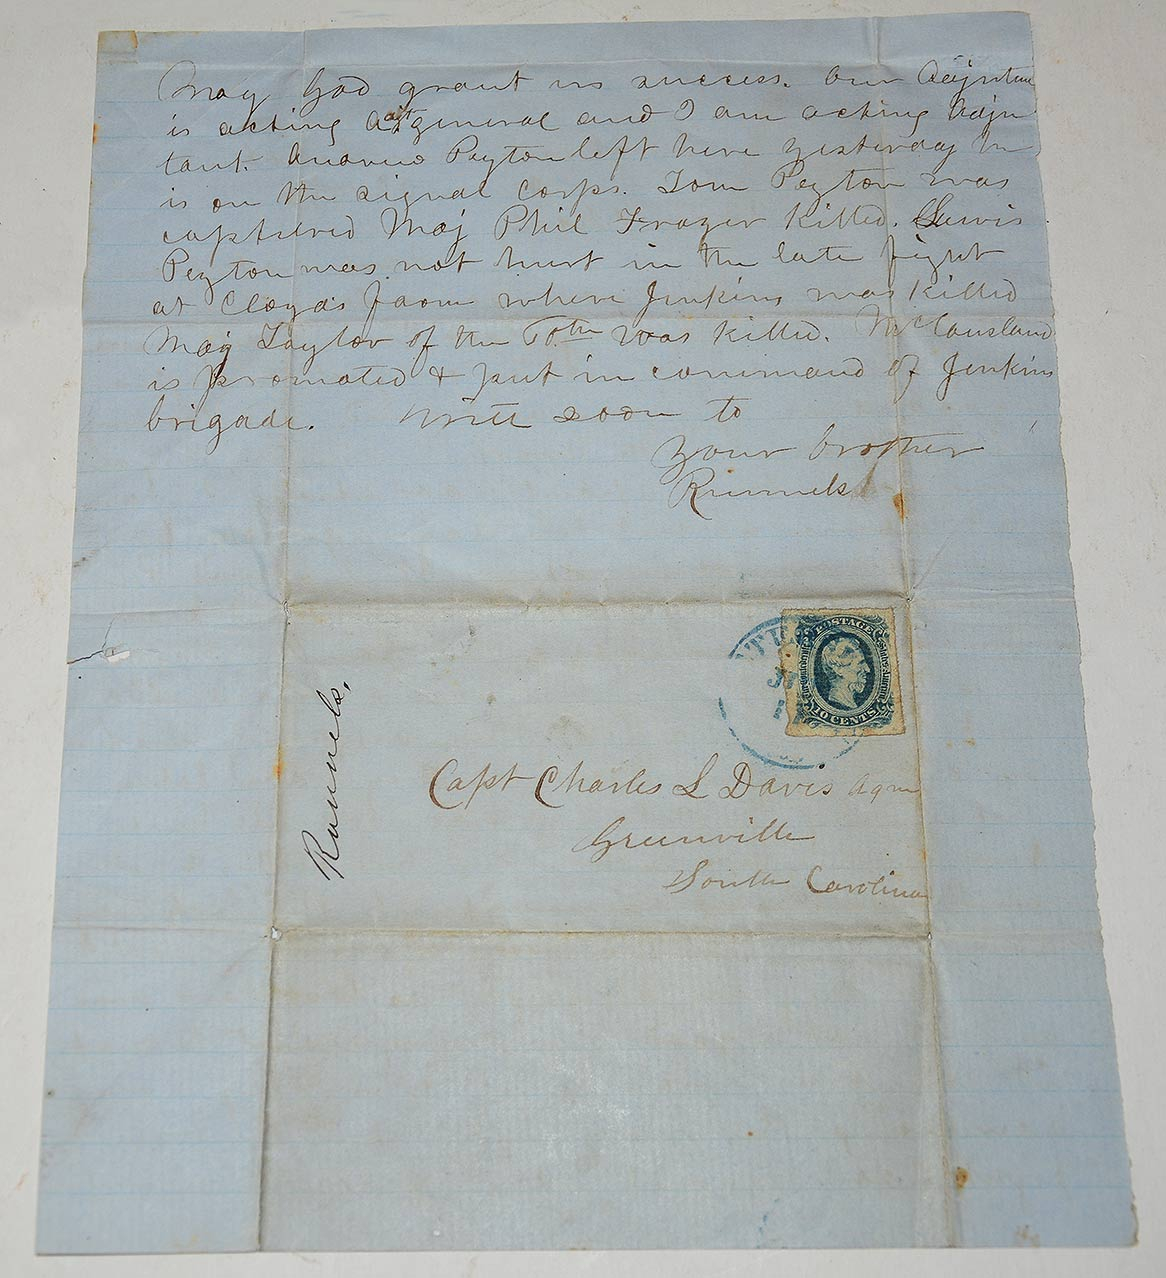 May God grant us success. Our Adjutan
is acting Ast general and I am acting Adju
tant. Peyton left here yesterday he
is on the signal corps. Tom Peyton was
captured Maj Phil Frazer killed. Lewis
Peyton was not hurt in the late fight
at Cloyds farm where Jenkins was killed
Maj Taylor of the was killed. McCausland
is promoted & put in command of Jenkins
brigade. Write soon to
your brother
Runnels
POSTAGE
The Confederate States of America
10 CENTS
Runnels.
Capt Charles L Davis aqm
Greenville
South Carolina